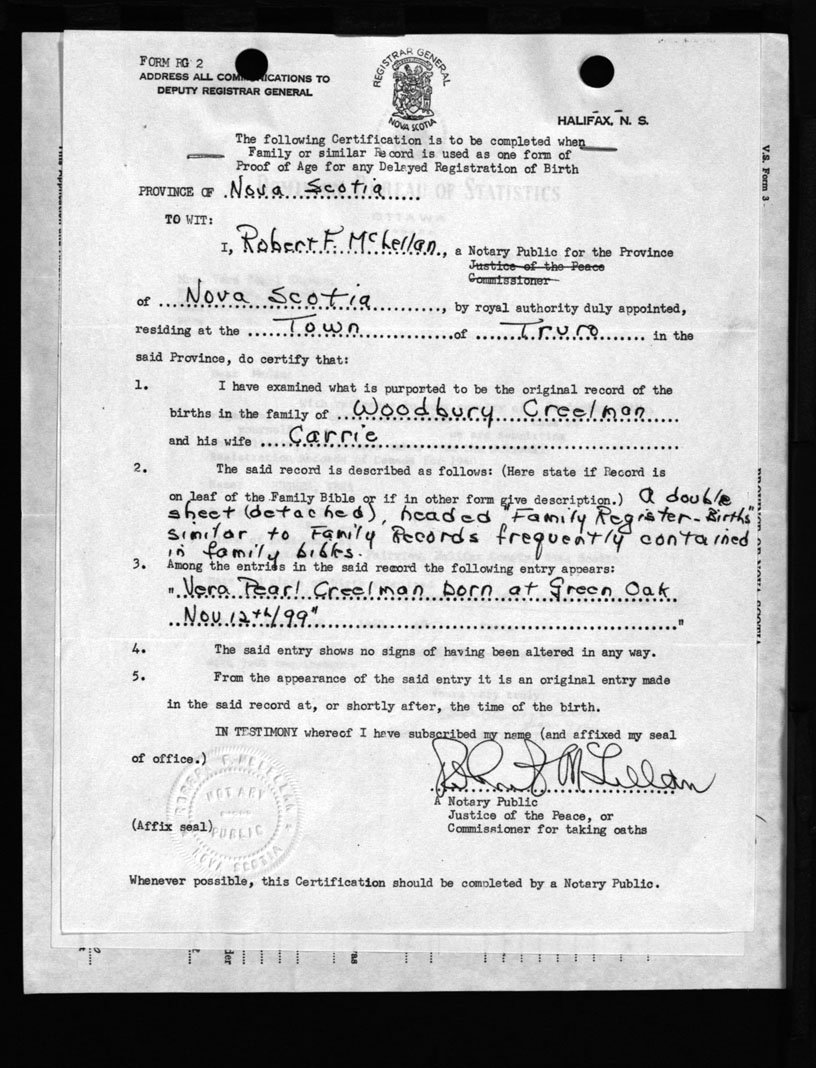 FORM RG 2
ADDRESS ALL COMMUNICATIONS TO
DEPUTY REGISTRAR GENERAL
REGISTRAR GENERAL
NOVA SCOTIA
HALIFAX, N. S.
The following Certification is to be completed when
Family or similar Record is used as one form of
Proof of Age for any Delayed Registration of Birth
PROVINCE OF Nova Scotia
TO WIT:
I, Robert F. McLellan, a Notary Public for the Province
Justice of the Peace
Commissioner
of Nova Scotia, by royal authority duly appointed,
residing at the Town of Truro in the
said Province, do certify that:
1. I have examined what is purported to be the original record of the
births in the family of Woodbury Creelman
and his wife Carrie
2. The said record is described as follows: (Here state if Record is
on leaf of the Family Bible or if in other form give description.) A double
sheet (detached), headed "Family Register-Births"
similar to Family Records frequently contained
in family bibles.
3. Among the entries in the said record the following entry appears:
"Vera Pearl Creelman born at Green Oak
Nov 12th/99"
"
4. The said entry shows no signs of having been altered in any way.
5. From the appearance of the said entry it is an original entry made
in the said record at, or shortly after, the time of the birth.
IN TESTIMONY whereof I have subscribed my name (and affixed my seal
of office.)
Robert F McLellan
A Notary Public
Justice of the Peace, or
Commissioner for taking oaths
(Affix seal)
ROBERT F. MCLELLAN
NOTARY
PUBLIC
NOVA SCOTIA
Whenever possible, this Certification should be completed by a Notary Public.
V.S. Form 3
BUREAU OF STATISTICS
OTTAWA